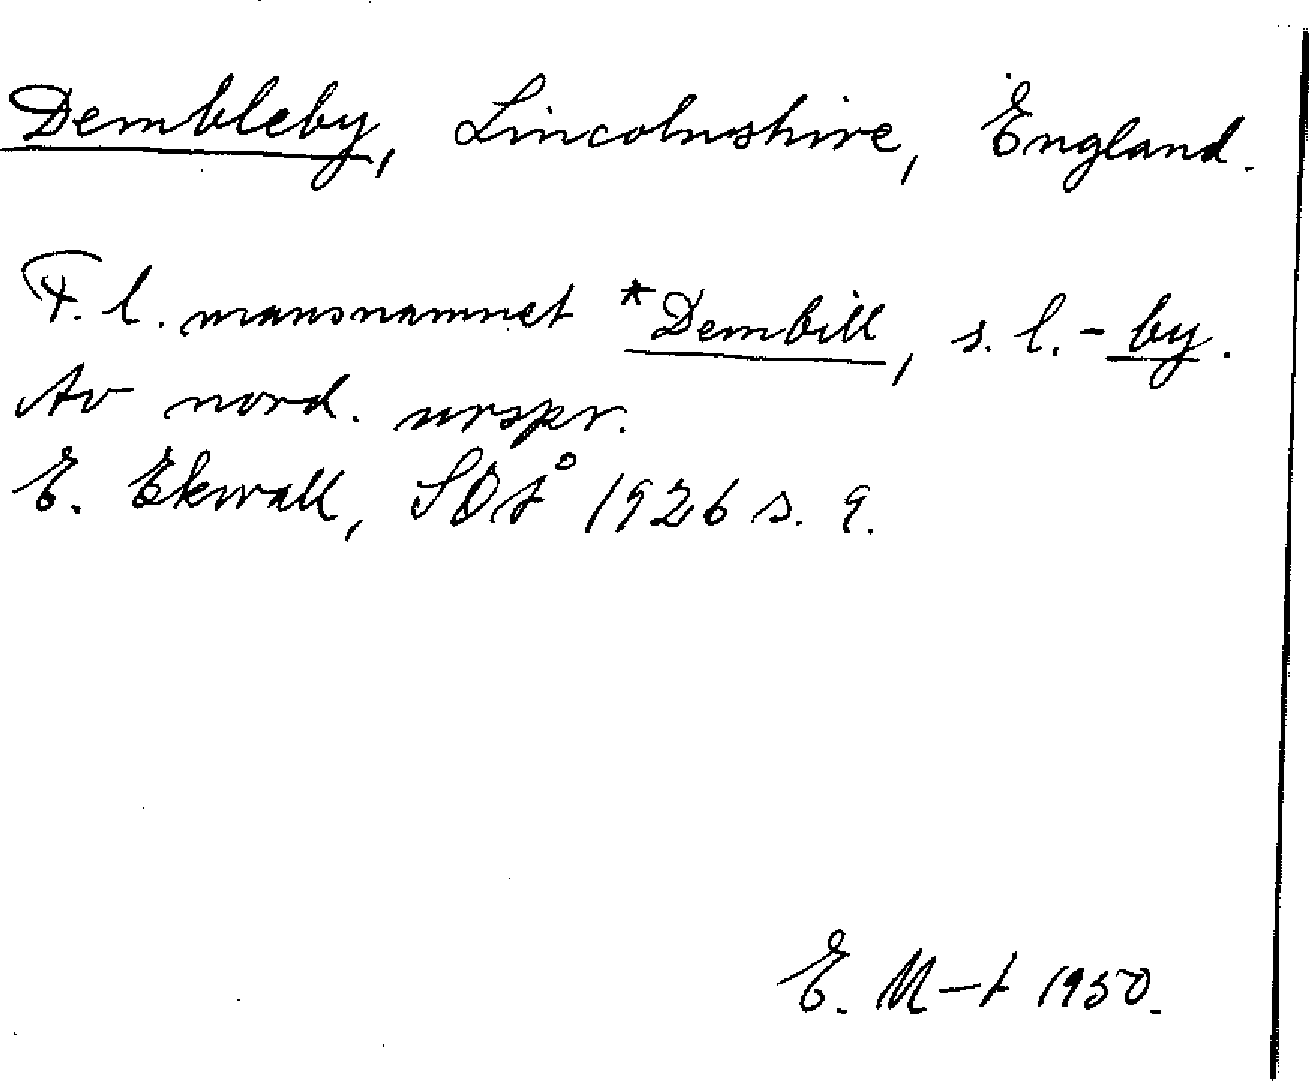 Dembleby, Lincolnshire, England.
F. l. mansnamnet *Dembill, s. l. -by.
Av nord. urspr.
E. Ekwall, SOÅ 1926 s. 9.
E. M-t 1950.